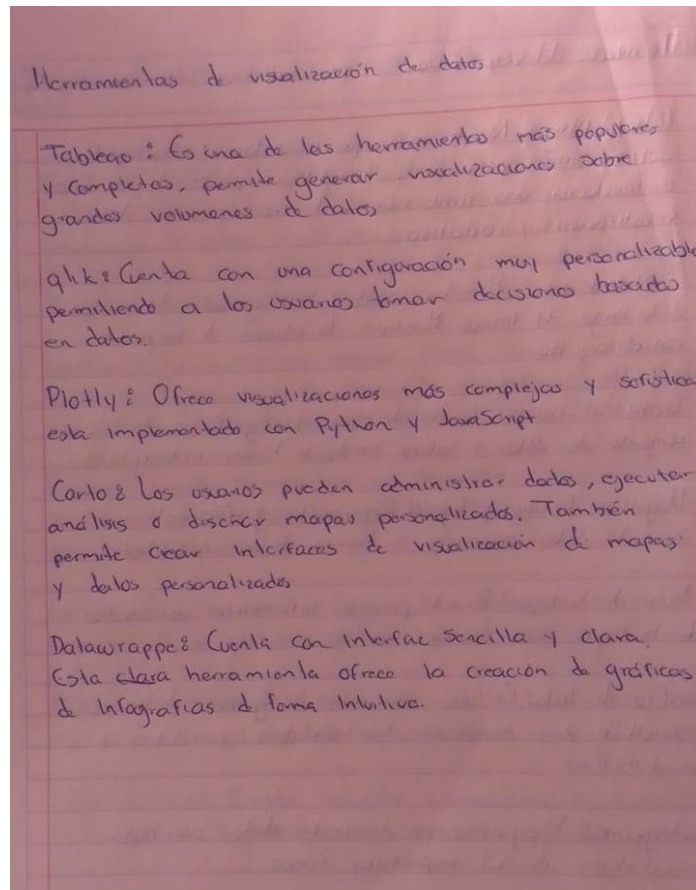 Herramientas de visualización de datos
Tableao: Es una de las herramientas más populares
y completas, permite generar visualizaciones sobre
grandes volumenes de datos
qlik: Cuenta con una configuración muy personalizable
permitiendo a los usuarios tomar decisiones basadas
en datos.
Plotly: Ofrece visualizaciones más complejas y sofistica
esta implementado con Python y JavaScript
Carto: Los usuarios pueden administrar datos, ejecutar
análisis o diseñar mapas personalizados. También
permite crear interfaces de visualización de mapas
y datos personalizados
Datawrappe: Cuenta con Interfac Sencilla y clara.
Esta clara herramienta ofrece la creación de gráficas
de Infografías de forma Intuitiva.